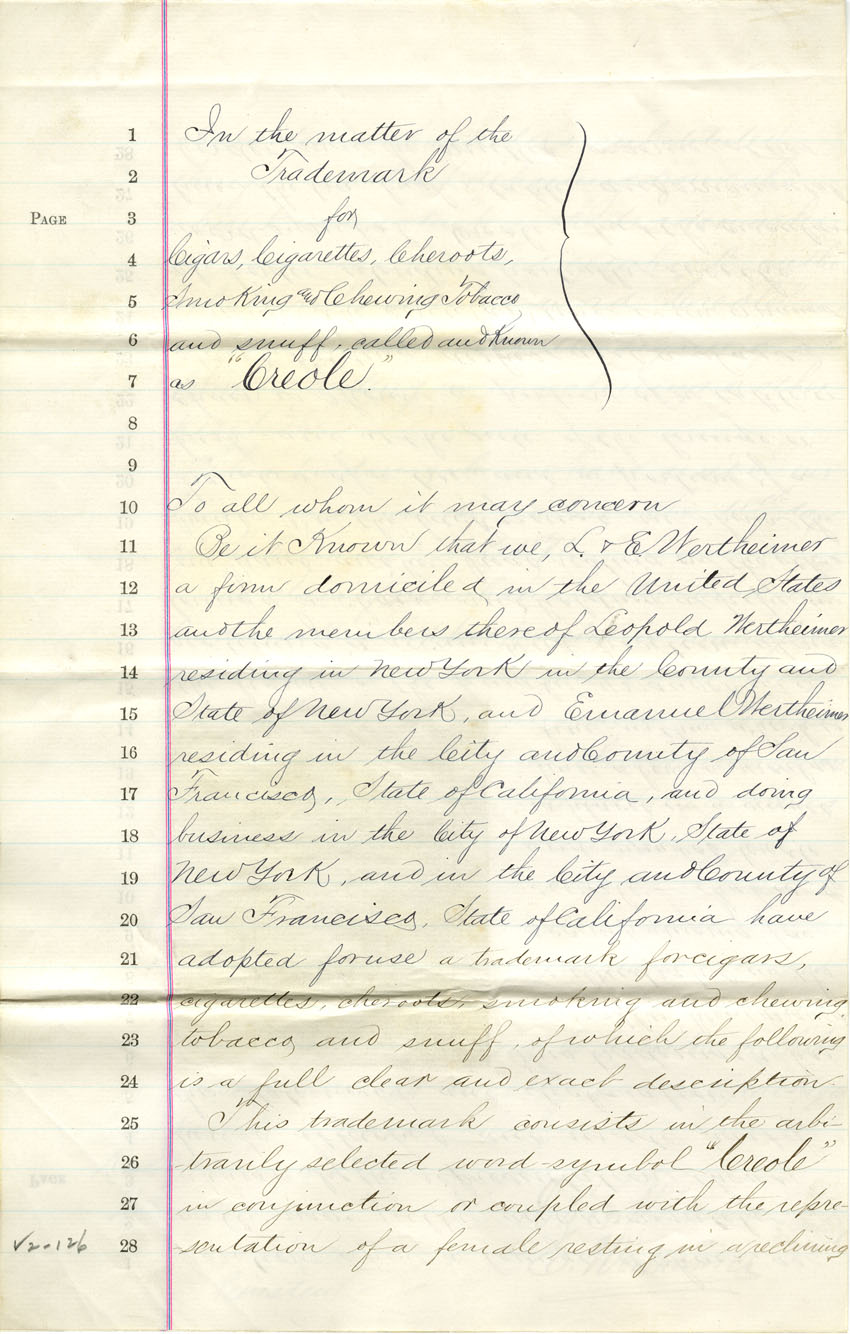 1 In the matter of the
2 Trademark
PAGE 3 for
4 Cigars, Cigarettes, Cheroots,
5 Smoking and Chewing Tobacco
6 and snuff, called and Known
7 as "Creole".
8
9
10 To all whom it may concern
11 Be it Known that we, L. & E. Wertheimer
12 a firm domiciled in the United States
13 and the members thereof Leopold Wertheimer
14 residing in New York in the County and
15 State of New York, and Emanuel Wertheimer
16 residing in the City and County of San
17 Francisco, State of California, and doing
18 business in the City of New York, State of
19 New York, and in the City and County of
20 San Francisco, State of California have
21 adopted for use a trademark for cigars,
22 cigarettes, cheroots, smoking and chewing
23 tobacco, and snuff, of which the following
24 is a full clear and exact description.
25 This trademark consists in the arbi-
26 trarily selected word-symbol "Creole"
27 in conjunction or coupled with the repre-
V2-126 28 -sentation of a female resting in a reclining